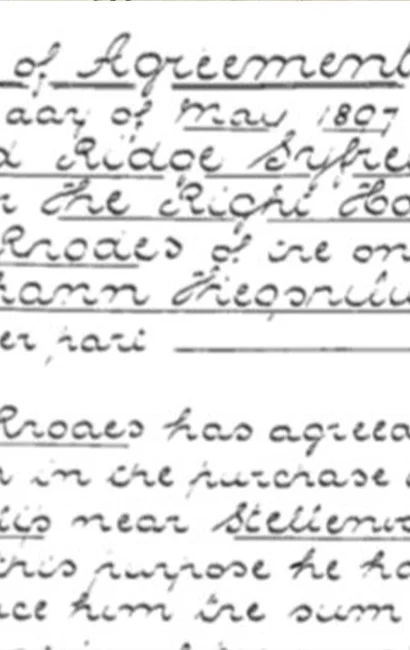 of Agreement
day of May 1897
Ridge Syfre
the Right Ho
Rhodes of the on
hann Theophilu
er part
Rhodes has agreed
in the purchase
near Stellen
this purpose he ha
him the sum